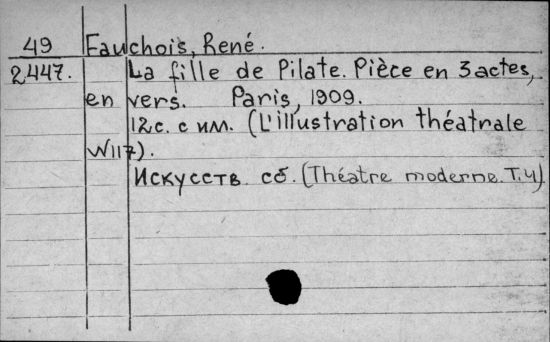 49 Fauchois, René.
2447. La fille de Pilate. Pièce en 3 actes,
en vers. Paris, 1909.
12с. с илл. (L'illustration théatrale
N117).
Искусств. сб. (Théatre moderne. T.4)